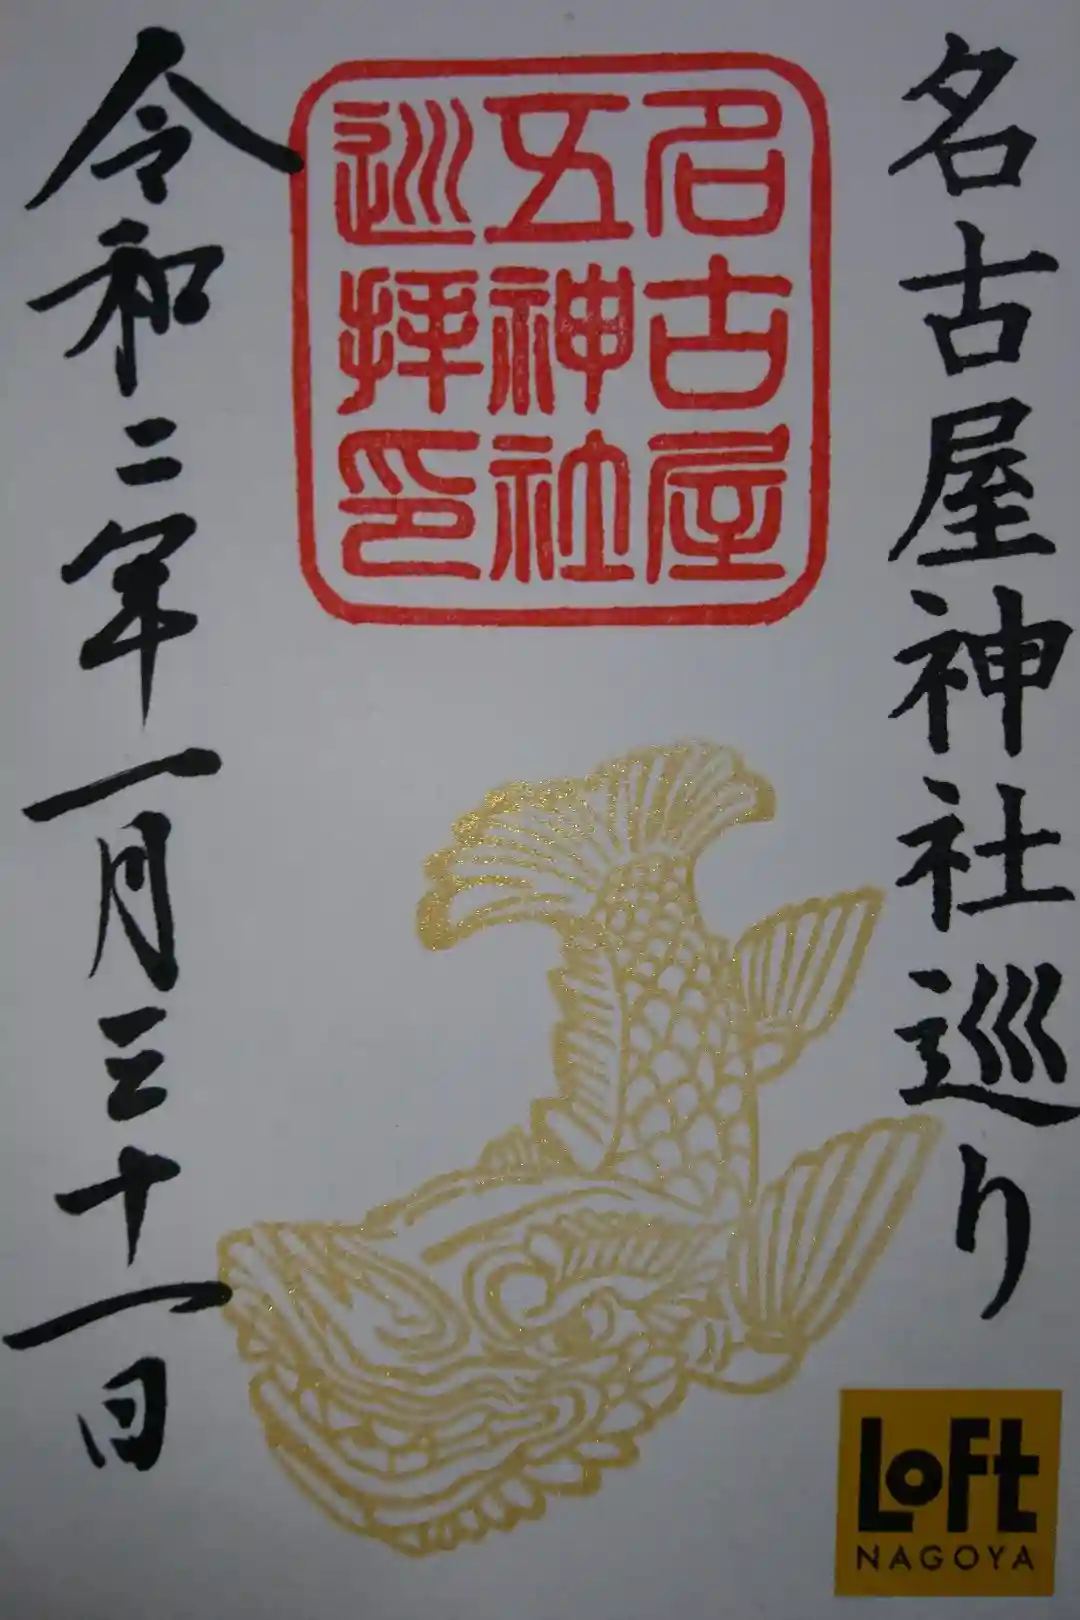 名古屋神社巡り
名古屋
五神社
巡拝印
令和二年一月三十一日
LoFt
NAGOYA